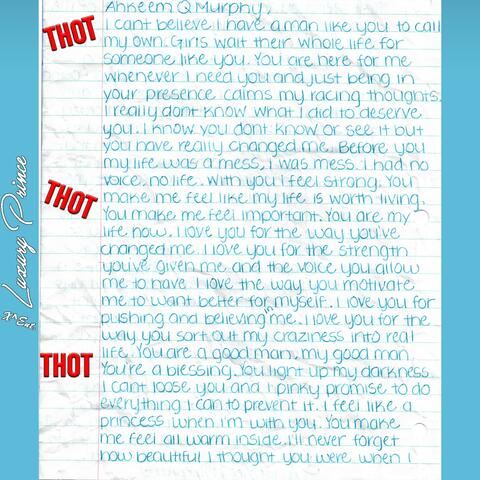 Ahkeem Q Murphy,
I cant believe I have a man like you to call
my own. Girls wait their whole life for
someone like you. You are here for me
whenever I need you and just being in
your presence calms my racing thoughts.
I really dont know what I did to deserve
you. I know you dont know or see it but
you have really changed me. Before you
my life was a mess, I was mess. I had no
voice, no life. With you I feel strong. You
make me feel like my life is worth living.
You make me feel important. You are my
life now. I love you for the way you've
changed me. I love you for the strength
you've given me and the voice you allow
me to have. I love the way you motivate
me to want better for myself. I love you for
pushing and believing in me. I love you for the
way you sort out my craziness into real
life. You are a good man, my good man.
You're a blessing. You light up my darkness.
I cant loose you and I pinky promise to do
everything I can to prevent it. I feel like a
princess when I'm with you. You make
me feel all warm inside. I'll never forget
how beautiful I thought you were when I
THOT
THOT
THOT
Luxury Prince